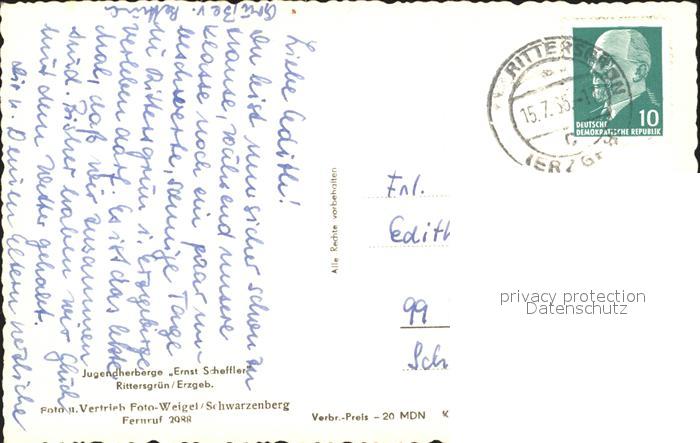 Liebe Edith!
Du bist nun sicher schon zu
Hause, während unsere
Klasse noch ein paar un-
beschwerte, sonnige Tage
in Rittersgrün i. Erzgebirge
verleben darf. Es ist das letzte
Mal, daß wir zusammen
sind. Bisher haben wir Glück
mit dem Wetter gehabt.
Dir u. Deinen Eltern herzliche
Grüße v.
Alle Rechte vorbehalten
Jugendherberge „Ernst Scheffler"
Rittersgrün/Erzgeb.
Foto u. Vertrieb Foto-Weigel/Schwarzenberg
Fernruf 2088
Verbr.-Preis – 20 MDN K
Frl.
Edith
99
Sch
RITTERSGRÜN
15.7.
(ERZGEB
10
DEUTSCHE
DEMOKRATISCHE REPUBLIK
privacy protection
Datenschutz